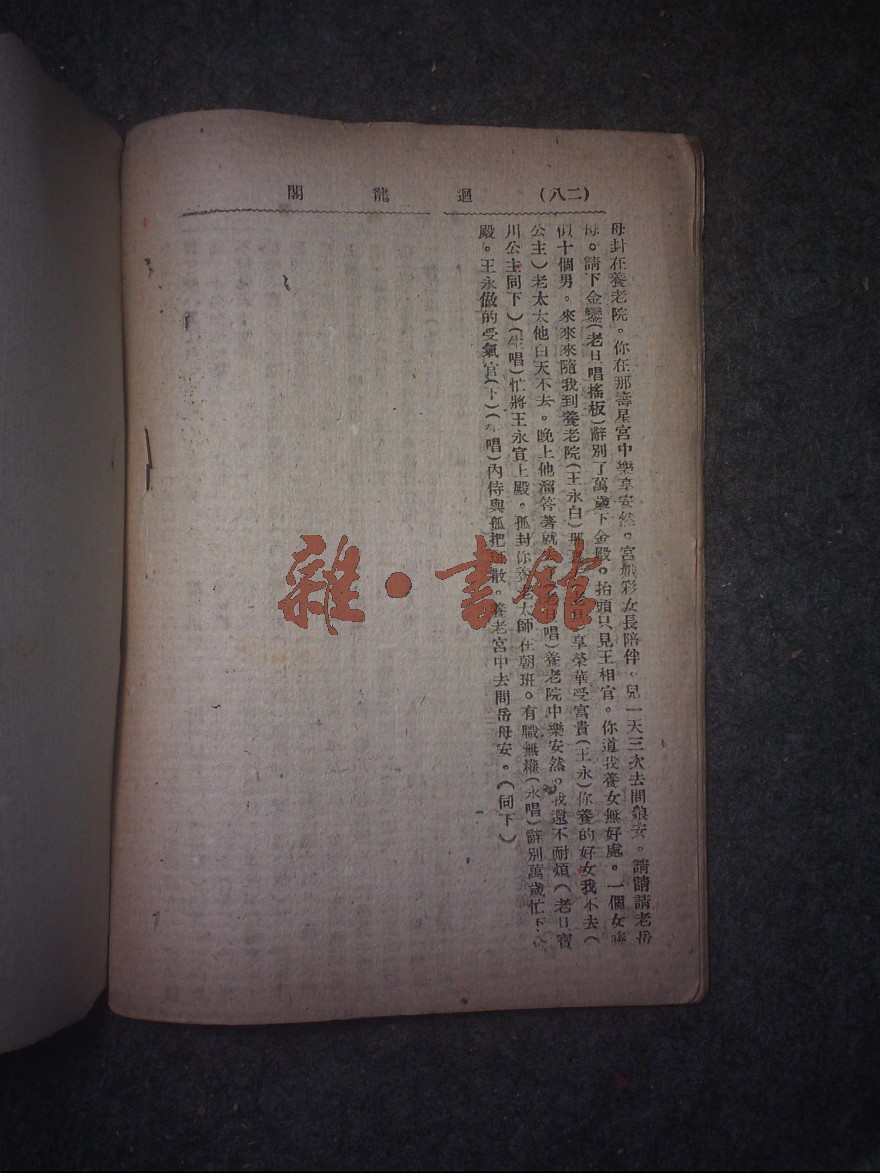 (二八) 迴龍閣
母封在養老院。你在那壽星宮中樂享安然。宮娥彩女長陪伴。兒一天三次去問娘安。請請請老岳
母。請下金鑾(老旦唱搖板)辭別了萬歲下金殿。抬頭只見王相官。你道我養女無好處。一個女
十個男。來來來隨我到養老院(王永白)享榮華受富貴(王永)你養的好女我不去(
公主)老太太他白天不去。晚上他溜答著就唱)養老院中樂安然。我還不耐煩(老旦寶
川公主同下)(生唱)忙將王永宣上殿。孤封你養老太師在朝班。有職無權(永唱)辭別萬歲忙下
殿。王永做的受氣官(下)(唱)內侍與孤把散。養老宮中去問岳母安。(同下)
雜·書館